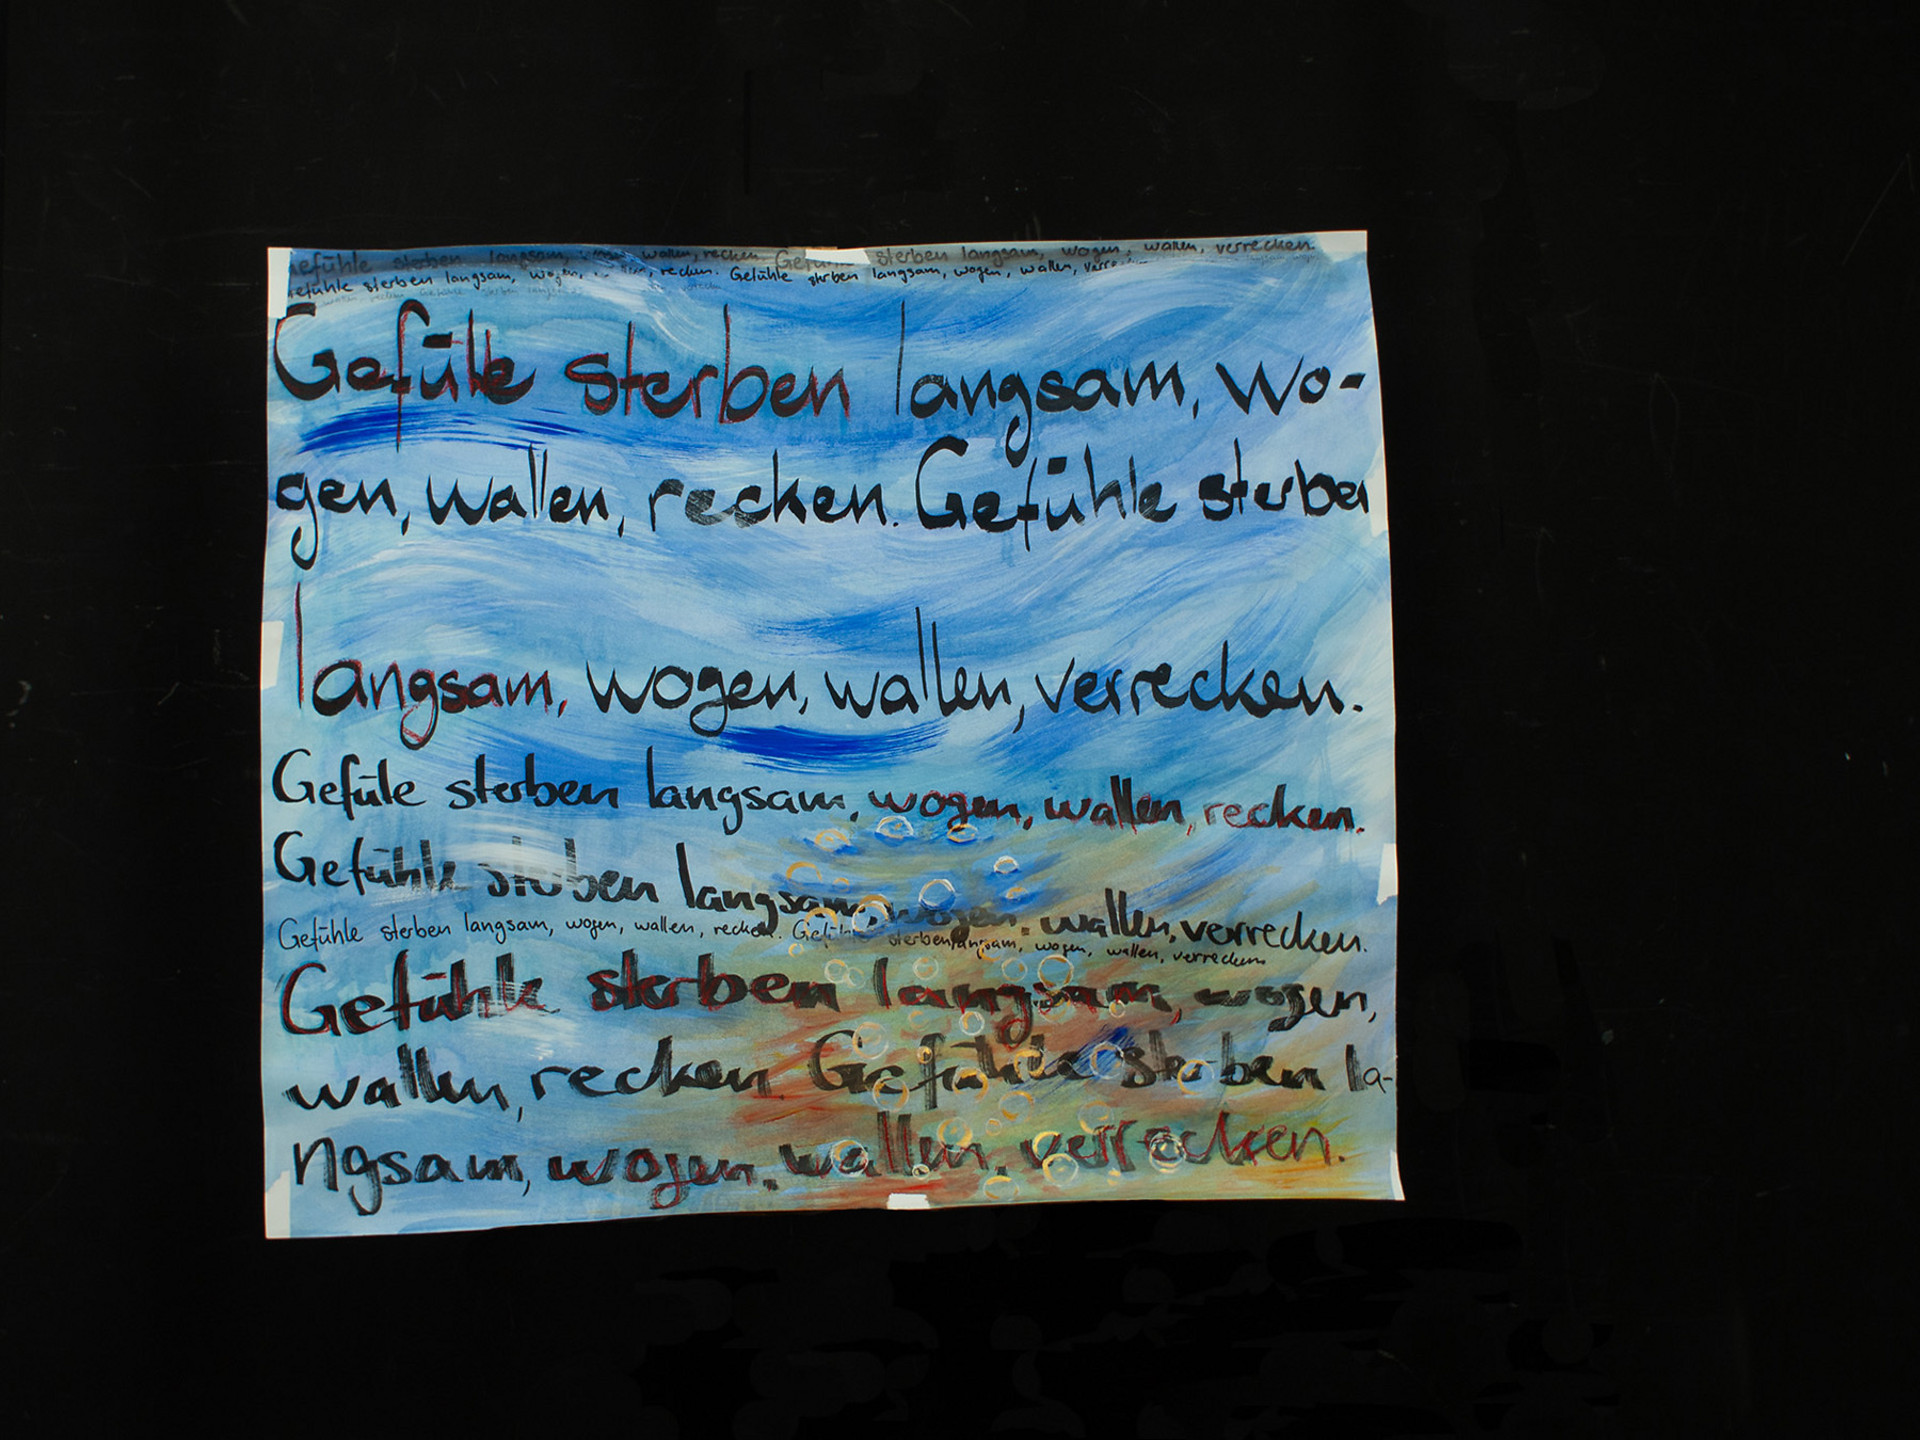 Gefühle sterben langsam, wallen, recken. Gefühle sterben langsam, wogen, wallen, verrecken.
Gefühle sterben langsam, wogen, recken. Gefühle sterben langsam, wogen, wallen,
Gefüle sterben langsam, wo-
gen, wallen, recken. Gefühle sterben
langsam, wogen, wallen, verrecken.
Gefüle sterben langsam, wogen, wallen, recken.
Gefühle sterben langsam, wogen, wallen, verrecken.
Gefühle sterben langsam, wogen, wallen, recken. Gefühle sterben langsam, wogen, wallen, verrecken
Gefühle sterben langsam, wogen,
wallen, recken. Gefühle sterben la-
ngsam, wogen, wallen, verrecken.